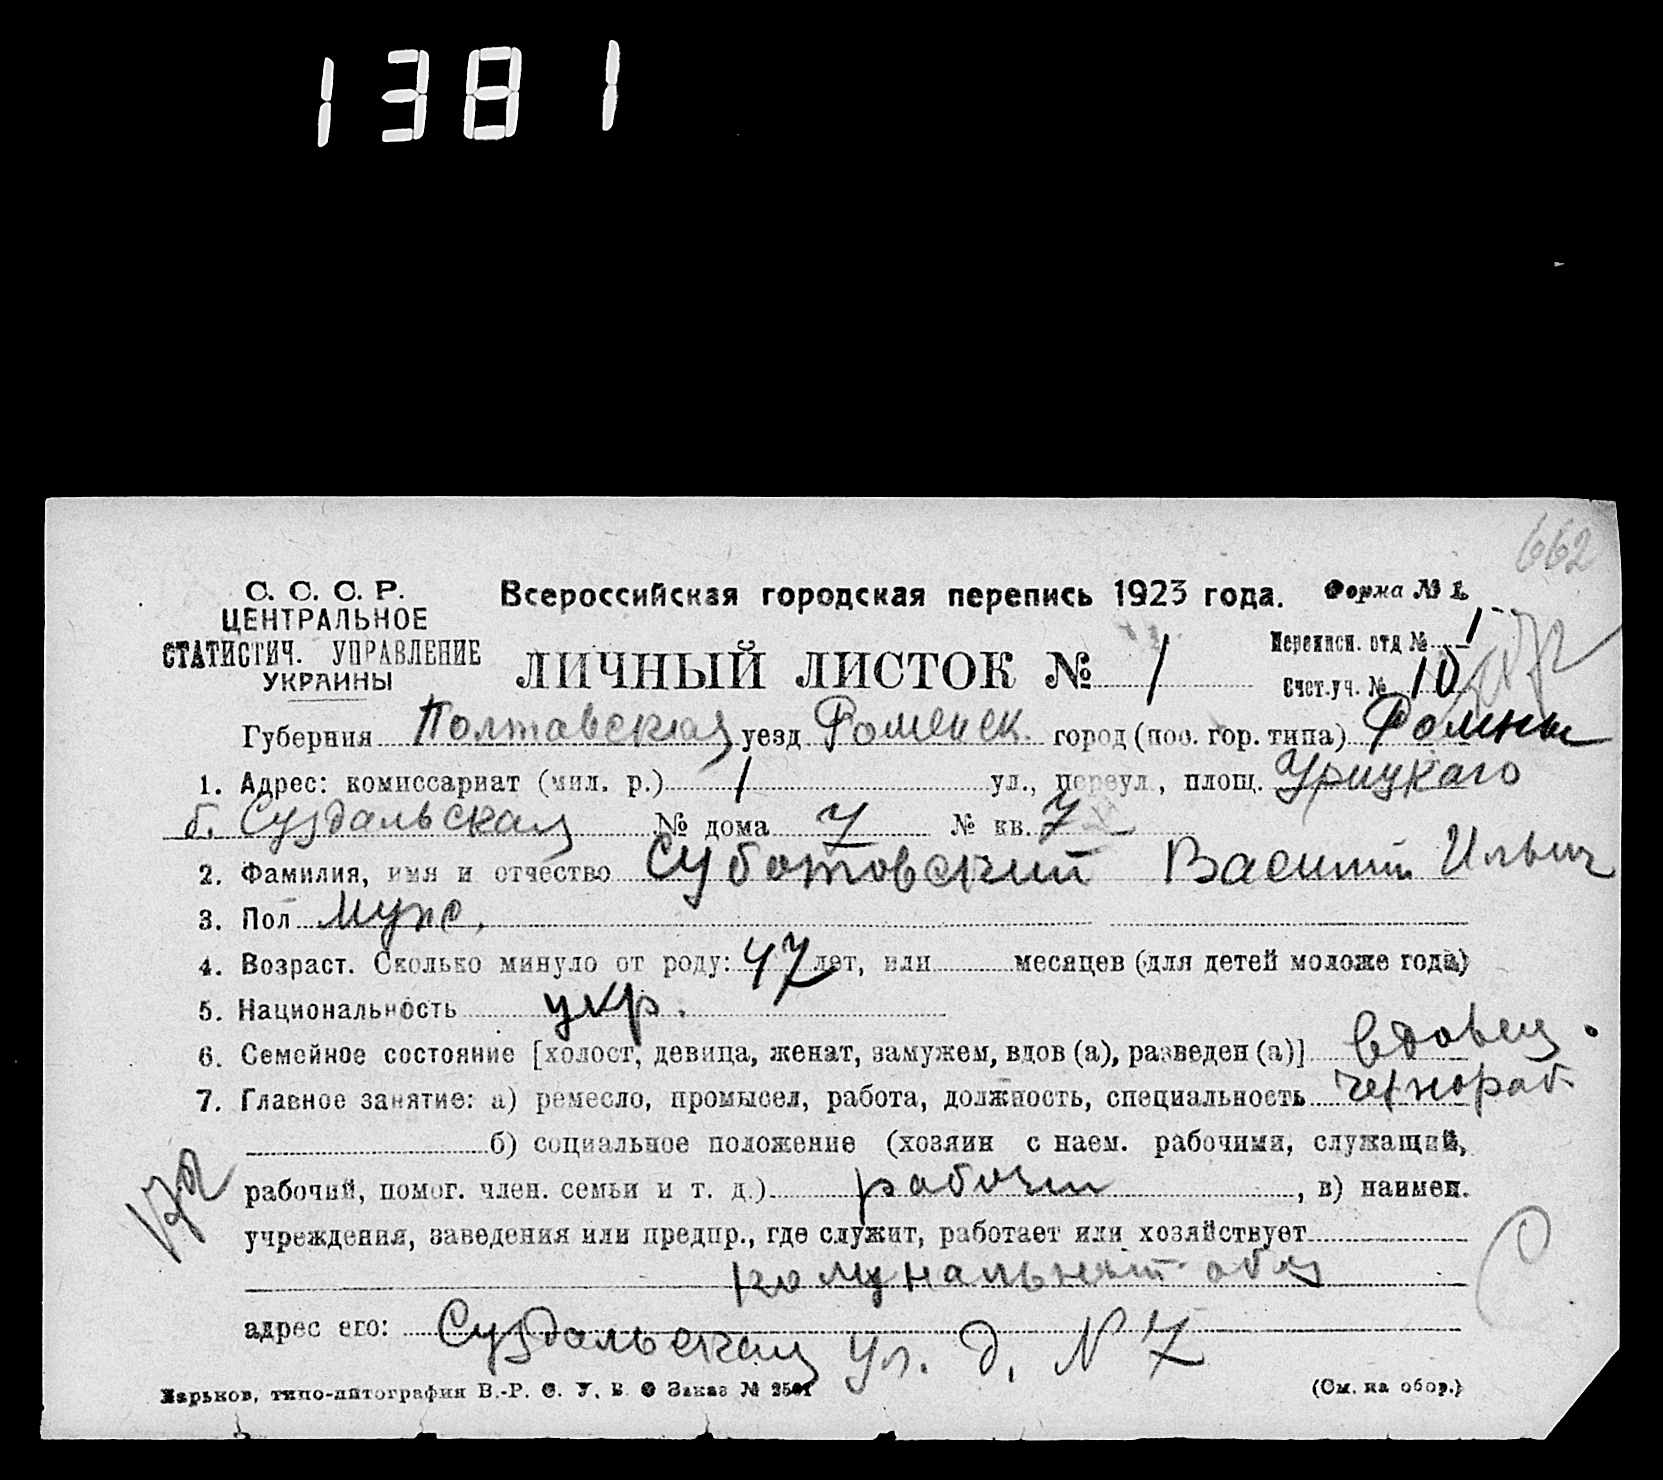 1381
662
С. С. С. Р.
ЦЕНТРАЛЬНОЕ
СТАТИСТИЧ. УПРАВЛЕНИЕ
УКРАИНЫ
Всероссийская городская перепись 1923 года. Форма № 1.
ЛИЧНЫЙ ЛИСТОК № 1
Переписн. отд № 1
Счет.уч. № 10
Губерния Полтавская уезд Роменск. город (пос. гор. типа) Ромны
1. Адрес: комиссариат (мил. р.) 1 ул., переул., площ. Урицкаго
б. Суздальская № дома 7 № кв. 7
2. Фамилия, имя и отчество Суботовский Василий Ильич
3. Пол муж.
4. Возраст. Сколько минуло от роду: 47 лет, или месяцев (для детей моложе года)
5. Национальность укр.
6. Семейное состояние [холост, девица, женат, замужем, вдов (а), разведен (а)] вдовец.
7. Главное занятие: а) ремесло, промысел, работа, должность, специальность чернораб.
б) социальное положение (хозяин с наем. рабочими, служащий,
рабочий, помог. член. семьи и т. д.) рабочий, в) наимен.
учреждения, заведения или предпр., где служит, работает или хозяйствует
адрес его: Суздальская ул. д. N 7
Харьков, типо-литография В.-Р. С. У. В. О Заказ № 2501 (См. на обор.)